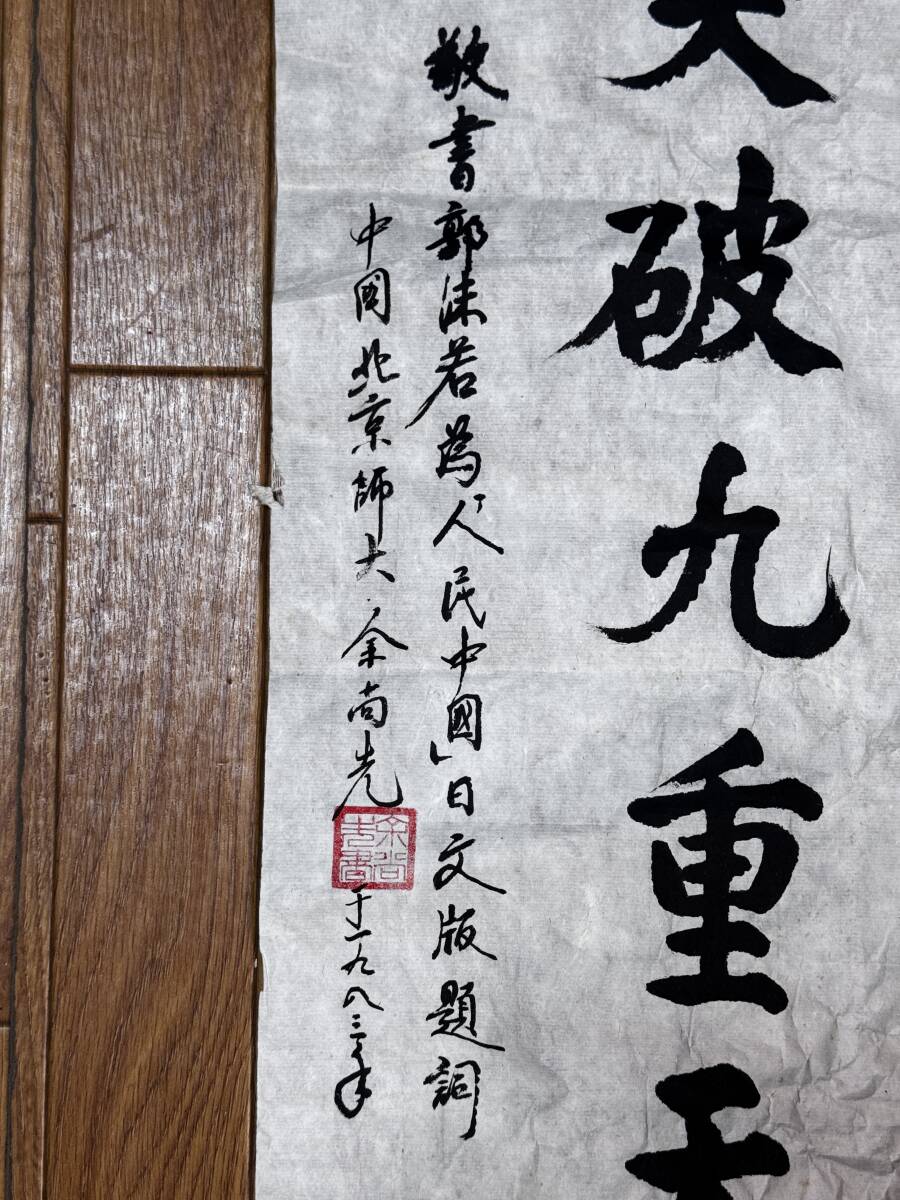 破九重
敬書郭沫若為「人民中國」日文版題詞
中国北京師大·余尚先
余尚先書
于一九八三年